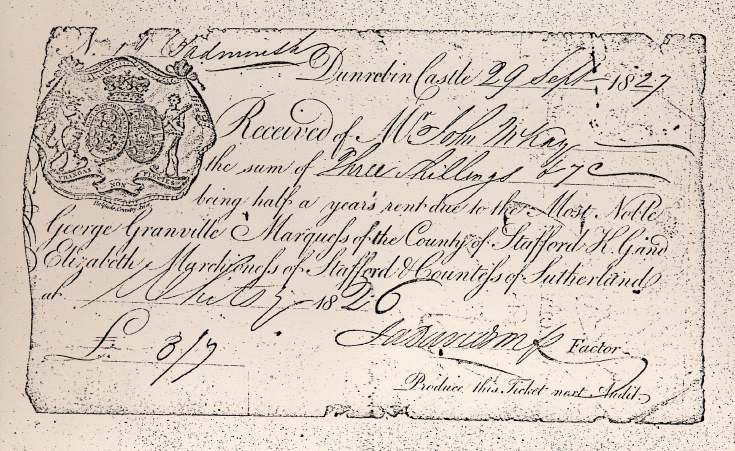 Dunrobin Castle 29 Sept 1827
Received of Mr. John McKay
the sum of Three Shillings & 7
being half a year's rent due to the Most Noble
George Granville Marquess of the County of Stafford K.G. and
Elizabeth Marchioness of Stafford & Countess of Sutherland
at Whitsy 1826
£. 3/7
Factor
Produce this Ticket next Audit.
FRANGAS NON FLECTES